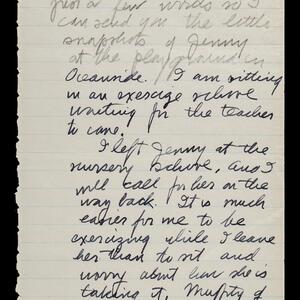 just a few words so I
can send you the little
snapshots of Jenny
at the playground in
Oceanside. I am sitting
in an exercize school
waiting for the teacher
to come.
I left Jenny at the
nursery school, and I
will call for her on the
way back. It is much
easier for me to be
exercizing while I leave
her than to sit and
worry about how she is
taking it. Mughty of